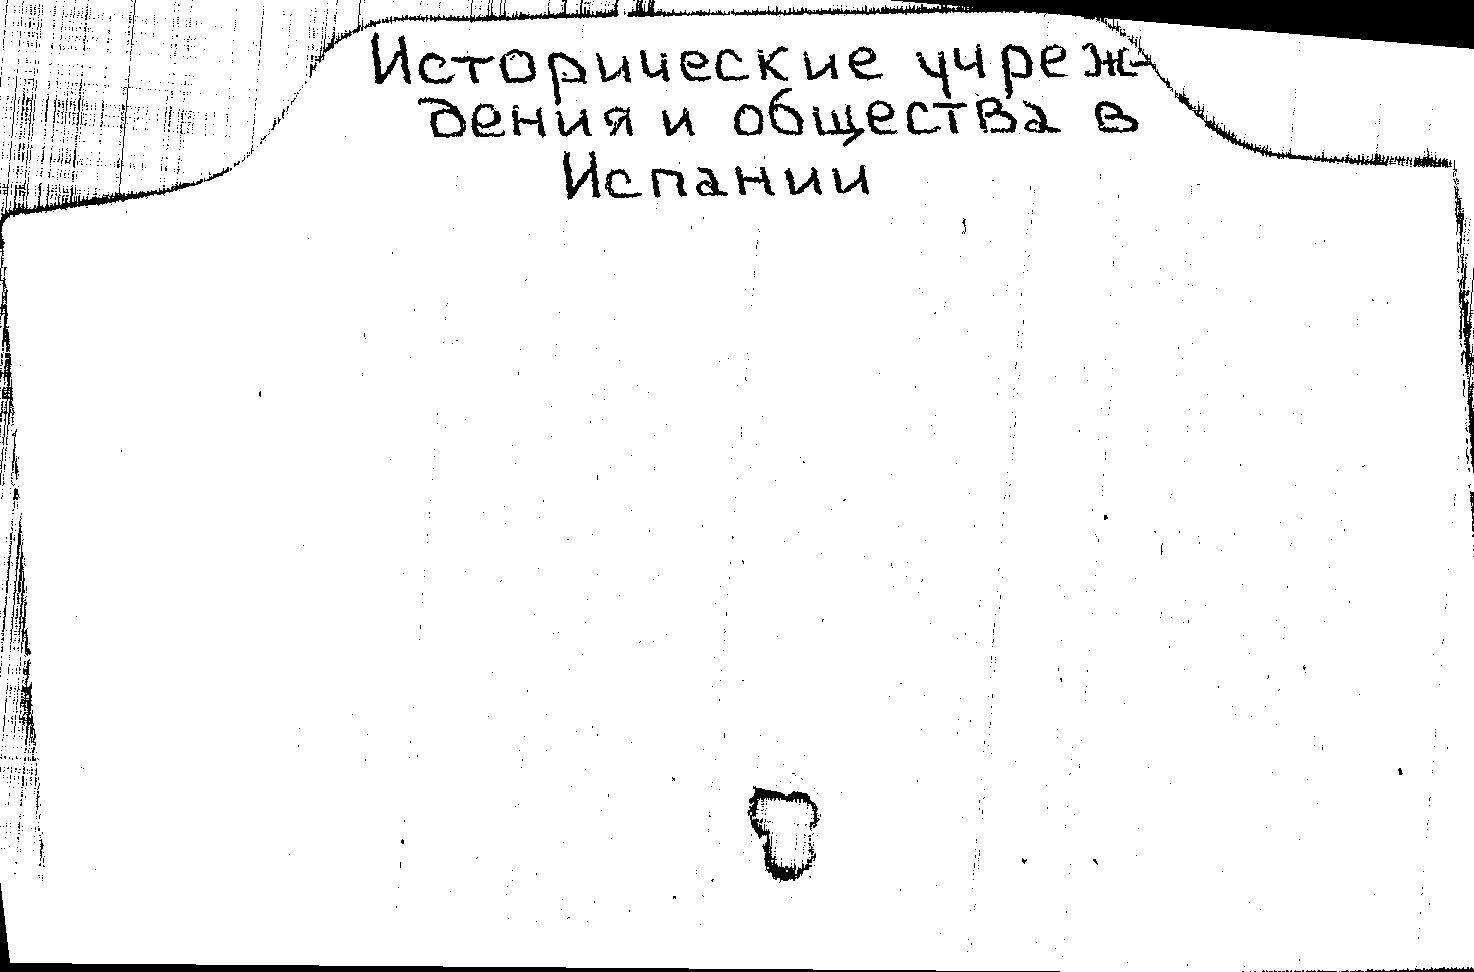 Исторические учреж-
дения и общества в
Испании